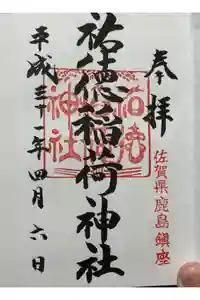 奉拝
佐賀県鹿島鎮座
祐徳稲荷神社
祐徳
神社
平成三十一年四月六日